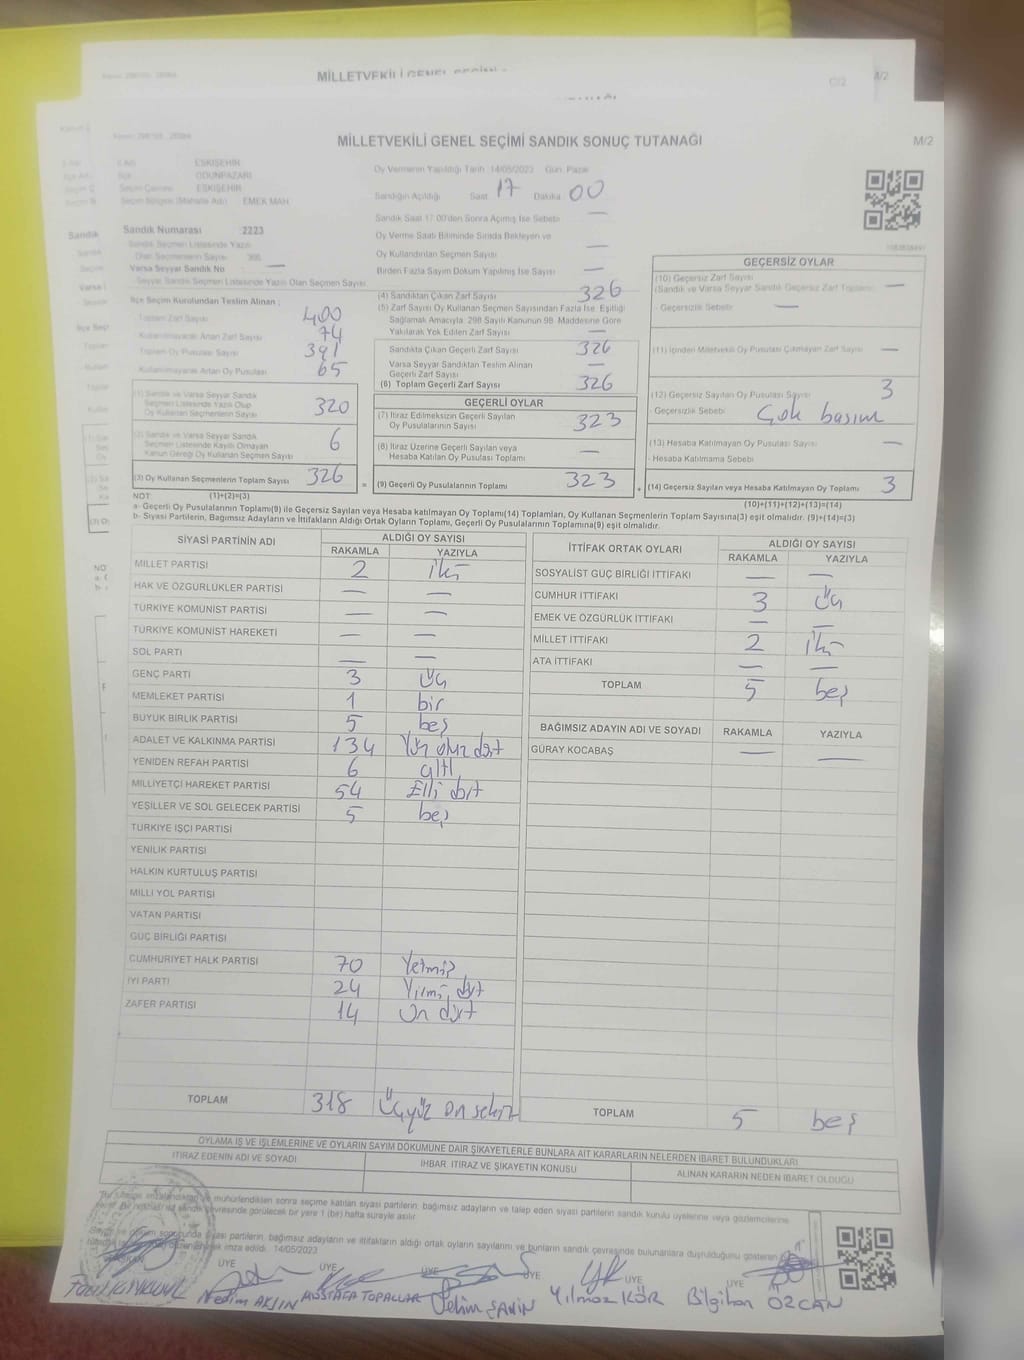 MİLLETVEKİLİ GENEL SEÇİMİ SANDIK SONUÇ TUTANAĞI
M/2
ESKİŞEHİR
ODUNPAZARI
ESKİŞEHİR
Seçim Bölgesi (Mahalle Adı) EMEK MAH
Sandık Numarası 2223
Sandık Seçmen Listesinde Yazılı
Olan Seçmenlerin Sayısı
Varsa Seyyar Sandık No —
Seyyar Sandık Seçmen Listesinde Yazılı Olan Seçmen Sayısı
İlçe Seçim Kurulundan Teslim Alınan ;
Toplam Zarf Sayısı 400
Kullanılmayarak Artan Zarf Sayısı 74
Toplam Oy Pusulası Sayısı 391
Kullanılmayarak Artan Oy Pusulası 65
(1) Sandık ve Varsa Seyyar Sandık
Seçmen Listesinde Yazılı Olup
Oy Kullanan Seçmenlerin Sayısı 320
(2) Sandık ve Varsa Seyyar Sandık
Seçmen Listesinde Kayıtlı Olmayan
Kanun Gereği Oy Kullanan Seçmen Sayısı 6
(3) Oy Kullanan Seçmenlerin Toplam Sayısı 326
Oy Vermenin Yapıldığı Tarih 14/05/2023 Gün: Pazar
Sandığın Açıldığı Saat 17 Dakika 00
Sandık Saat 17.00'den Sonra Açılmış İse Sebebi —
Oy Verme Saati Bitiminde Sırada Bekleyen ve
Oy Kullandırılan Seçmen Sayısı —
Birden Fazla Sayım Döküm Yapılmış İse Sayısı —
(4) Sandıktan Çıkan Zarf Sayısı 326
(5) Zarf Sayısı Oy Kullanan Seçmen Sayısından Fazla İse Eşitliği
Sağlamak Amacıyla 298 Sayılı Kanunun 98. Maddesine Göre
Yakılarak Yok Edilen Zarf Sayısı —
Sandıkta Çıkan Geçerli Zarf Sayısı 326
Varsa Seyyar Sandıktan Teslim Alınan
Geçerli Zarf Sayısı —
(6) Toplam Geçerli Zarf Sayısı 326
GEÇERLİ OYLAR
(7) İtiraz Edilmeksizin Geçerli Sayılan
Oy Pusulalarının Sayısı 323
(8) İtiraz Üzerine Geçerli Sayılan veya
Hesaba Katılan Oy Pusulası Toplamı —
= (9) Geçerli Oy Pusulalarının Toplamı 323 +
GEÇERSİZ OYLAR
(10) Geçersiz Zarf Sayısı
(Sandık ve Varsa Seyyar Sandık Geçersiz Zarf Toplamı) —
Geçersizlik Sebebi —
(11) İçinden Milletvekili Oy Pusulası Çıkmayan Zarf Sayısı —
(12) Geçersiz Sayılan Oy Pusulası Sayısı 3
- Geçersizlik Sebebi Çok basım
(13) Hesaba Katılmayan Oy Pusulası Sayısı —
- Hesaba Katılmama Sebebi
(14) Geçersiz Sayılan veya Hesaba Katılmayan Oy Toplamı 3
NOT: (1)+(2)=(3)
(10)+(11)+(12)+(13)=(14)
a- Geçerli Oy Pusulalarının Toplamı(9) ile Geçersiz Sayılan veya Hesaba katılmayan Oy Toplamı(14) Toplamları, Oy Kullanan Seçmenlerin Toplam Sayısına(3) eşit olmalıdır. (9)+(14)=(3)
b- Siyasi Partilerin, Bağımsız Adayların ve İttifakların Aldığı Ortak Oyların Toplamı, Geçerli Oy Pusulalarının Toplamına(9) eşit olmalıdır.
SİYASİ PARTİNİN ADI ALDIĞI OY SAYISI
RAKAMLA YAZIYLA
MİLLET PARTİSİ 2 iki
HAK VE ÖZGÜRLÜKLER PARTİSİ — —
TÜRKİYE KOMÜNİST PARTİSİ — —
TÜRKİYE KOMÜNİST HAREKETİ — —
SOL PARTİ — —
GENÇ PARTİ 3 üç
MEMLEKET PARTİSİ 1 bir
BÜYÜK BİRLİK PARTİSİ 5 beş
ADALET VE KALKINMA PARTİSİ 134 Yüz otuz dört
YENİDEN REFAH PARTİSİ 6 altı
MİLLİYETÇİ HAREKET PARTİSİ 54 Elli dört
YEŞİLLER VE SOL GELECEK PARTİSİ 5 beş
TÜRKİYE İŞÇİ PARTİSİ
YENİLİK PARTİSİ
HALKIN KURTULUŞ PARTİSİ
MİLLİ YOL PARTİSİ
VATAN PARTİSİ
GÜÇ BİRLİĞİ PARTİSİ
CUMHURİYET HALK PARTİSİ 70 Yetmiş
İYİ PARTİ 24 Yirmi dört
ZAFER PARTİSİ 14 On dört
TOPLAM 318 Üçyüz on sekiz
İTTİFAK ORTAK OYLARI ALDIĞI OY SAYISI
RAKAMLA YAZIYLA
SOSYALİST GÜÇ BİRLİĞİ İTTİFAKI — —
CUMHUR İTTİFAKI 3 Üç
EMEK VE ÖZGÜRLÜK İTTİFAKI — —
MİLLET İTTİFAKI 2 iki
ATA İTTİFAKI — —
TOPLAM 5 beş
BAĞIMSIZ ADAYIN ADI VE SOYADI RAKAMLA YAZIYLA
GÜRAY KOCABAŞ — —
TOPLAM 5 beş
OYLAMA İŞ VE İŞLEMLERİNE VE OYLARIN SAYIM DÖKÜMÜNE DAİR ŞİKAYETLERLE BUNLARA AİT KARARLARIN NELERDEN İBARET BULUNDUKLARI
İTİRAZ EDENİN ADI VE SOYADI İHBAR İTİRAZ VE ŞİKAYETİN KONUSU ALINAN KARARIN NEDEN İBARET OLDUĞU
mühürlendikten sonra seçime katılan siyasi partilerin, bağımsız adayların ve talep eden siyasi partilerin sandık kurulu üyelerine veya gözlemcilerine
çevresinde görülecek bir yere 1 (bir) hafta süreyle asılır
siyasi partilerin, bağımsız adayların ve ittifakların aldığı ortak oyların sayılarını ve bunların sandık çevresinde bulunanlara duyurulduğunu gösteren
imza edildi. 14/05/2023
BAŞKAN ÜYE ÜYE ÜYE ÜYE ÜYE ÜYE
Nedim AKSIN MUSTAFA TOPALLAR Selim ŞAHİN Yılmaz KÖR Bilgihan ÖZCAN